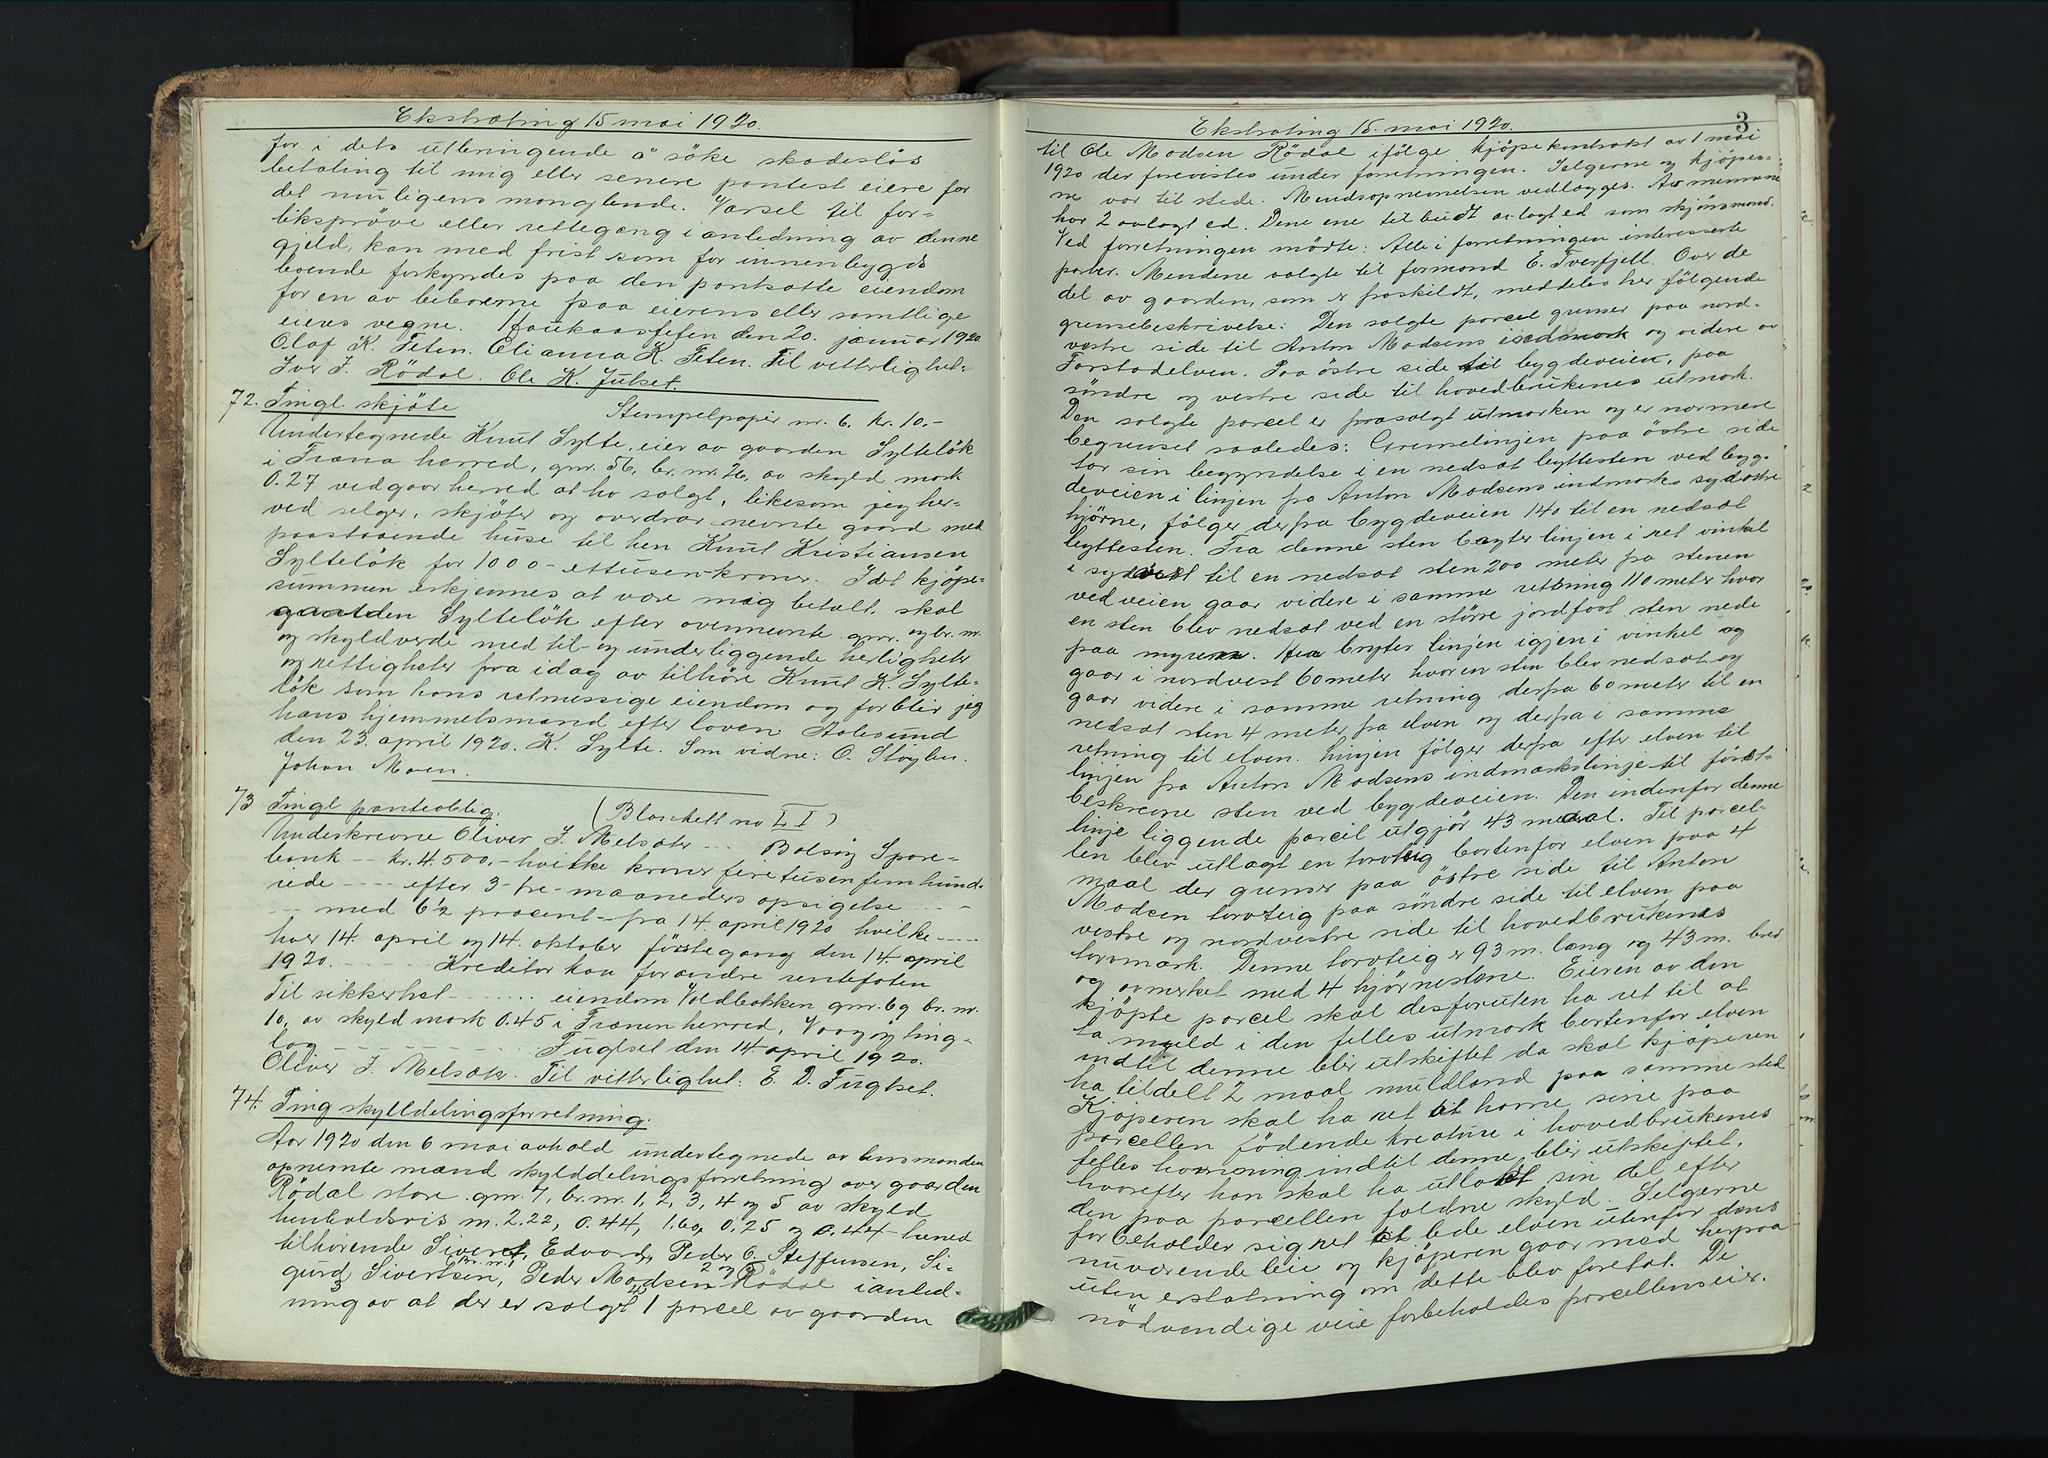 Ekstrating 15 mai 1920.
for i dets utbringende å söke skadeslös
betaling til mig eller senere pantest eiere for
det muligens manglende. Varsel til for-
liksprøve eller rettegang i anledning av denne
gjeld, kan med frist som for innenbygds
boende forkyndes paa den pantsatte eiendom
for en av beboerne paa eierens eller samtlige
eieres vegne. Haukaasfeten den 20. januar 1920
Olaf K. Feten. Elianna K. Feten. Til vitterlighet:
Iver I. Rödal. Ole K. Julset.
72. Tingl. skjöte Stempelpapir nr. 6. kr. 10.-
Undertegnede Knut Sylte, eier av gaarden Syltelök
i Fræna herred, gnr. 56, br. nr. 26, av skyld mark
0.27 vedgaar herved at ha solgt, likesom jeg her-
ved selger, skjöter og overdrar nevnte gaard med
paastaaende huse til hen Knut Kristiansen
Syltelök for 1000 - ettusen - kroner. Idet kjöpe-
summen erkjennes at være mig betalt, skal
gaarden Syltelök efter ovennevnte gnr. og br. nr.
og skyldverdi med til- og underliggende herligheter
og rettigheter fra idag av tilhöre Knut K. Sylte-
lök som hans retmessige eiendom og forblir jeg
hans hjemmelsmand efter loven Aalesund
den 23. april 1920. K. Sylte. Som vidne: O. Støylen.
Johan Moen.
73 Tingl panteoblig. (Blankett no LI)
Underskrevne Oliver J. Melsæter --- Bolsöy Spare-
bank -- kr. 4.500,- hvilke kroner firetusen fem hund-
rede ---- efter 3 - tre - maaneders opsigelse ----
--- med 6½ procent - fra 14 april 1920 hvilke ----
hver 14. april og 14. oktober förste gang den 14 april
1920. ---- Kreditor kan forandre rentefoten
Til sikkerhet ------ eiendom Voldbakken gnr. 69 br. nr.
10, av skyld mark 0.45 i Frænen herred, Vaagöy ting-
lag -------- Fuglset den 14 april 1920.
Oliver J. Melsæter. Til vitterlighet: E. D. Fuglset.
74. Ting skylddelingsforretning.
Aar 1920 den 6 mai avhold undertegnede av lensmanden
opnevnte mænd skylddelingsforretning over gaarden
Rödal store gnr. 7, br. nr. 1, 2, 3, 4 og 5 av skyld
henholdsvis m. 2.22, 0.44, 1.60, 0.25 og 0.44 - herred
tilhørende Sivert, Edvard, Peder O. Steffensen, Si-
gurd Sivertsen, Peder Madsen Rödal i anled-
ning av at der er solgt 1 parcel av gaarden
Ekstrating 15. mai 1920. 3
til Ole Madsen Rödal ifölge kjöpekontrakt av 1 mai
1920 der forevistes under forretningen. Selgerne og kjöper-
ne var til stede. Mendsopnemelsen vedlægges. Av mennene
har 2 avlagt ed. Den ene tilbudt avlagt ed som skjönsmand.
Ved forretningen mödte: Alle i forretningen interesserte
parter. Mendene valgte til formand E. Tverfjell. Over de
del av gaarden, som er fraskildt, meddeles her fölgende
grensebeskrivelse: Den solgte parcel grenser paa nord-
vestre side til Anton Madsens indmark og videre av
Farstadelven. Paa östre side til bygdeveien, paa
söndre og vestre side til hovedbrukenes utmark.
Den solgte parcel er frasolgt utmarken og er nermere
begrenset saaledes: Grenselinjen paa östre side
tar sin begyndelse i en nedsat byttesten ved byg-
deveien i linjen fra Anton Madsens indmarks sydöstre
hjörne, fölger derfra bygdeveien 140 til en nedsat
byttesten. Fra denne sten bryter linjen i ret vinkel
i sydvest til en nedsat sten 200 meter fra stenen
ved veien gaar videre i samme retning 110 meter hvor
en sten blev nedsat ved en större jordfast sten nede
paa myren. Herfra bryter linjen igjen i vinkel og
gaar i nordvest 60 meter hvor en sten blev nedsat og
gaar videre i samme retning derfra 60 meter til en
nedsat sten 4 meter fra elven og derfra i samme
retning til elven. Linjen fölger derfra efter elven til
linjen fra Anton Madsens indmarkslinje til först-
beskrevne sten ved bygdeveien. Den indenfor denne
linje liggende parcel utgjör 43 maal. Til parcel-
len blev utlagt en torvteig bortenfor elven paa 4
maal der grenser paa östre side til Anton
Madsen torvteig paa söndre side til elven paa
vestre og nordvestre side til hovedbrukenes
torvmark. Denne torvteig er 93 m. lang og 43 m. bred
og avmerket med 4 hjörnestene. Eieren av den
kjöpte parcel skal desforuten ha ret til at
ta muld i den felles utmark bortenfor elven
indtil denne blir utskiftet da skal kjöperen
ha tildelt 2 maal muldland paa samme sted
Kjöperen skal ha ret til havne sine paa
parcellen födende kreature i hovedbrukenes
felles havning indtil denne blir utskiftet,
hvorefter han skal ha utlagt sin del efter
den paa parcellen faldne skyld. Selgerne
forbeholder sig ret til lede elven utenfor dens
nuværende leie og kjöperen gaar med herpaa
uten erstatning om dette blev foretat. De
nödvendige veie forbeholdes parcellens eier.